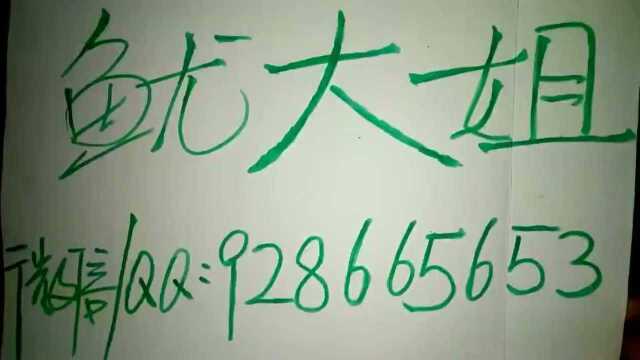 鱿大姐
微信/QQ:928665653